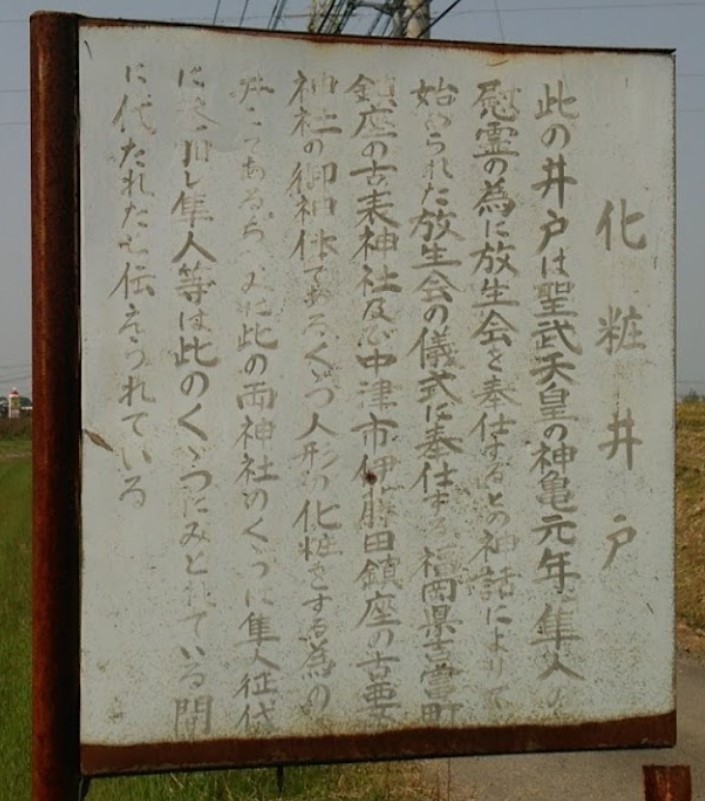 化粧井戸
此の井戸は聖武天皇の神亀元年隼人の
慰霊の為に放生会を奉仕するとの神話によりて
始められた放生会の儀式に奉仕する福岡県吉富町
鎮座の古表神社及び中津市伊藤田鎮座の古要
神社の御神体であるくゞつ人形の化粧をする為の
井戸である 此の両神社のくゞつは隼人征伐
に参加し隼人等は此のくゞつにみとれている間
に伐たれたと伝えられている